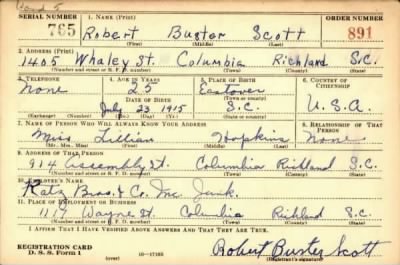 SERIAL NUMBER 1. NAME (Print) ORDER NUMBER
765 Robert Buster Scott 891
(First) (Middle) (Last)
2. ADDRESS (Print)
1405 Whaley St. Columbia Richland S.C.
(Number and street or R. F. D. number) (Town) (County) (State)
3. TELEPHONE 4. AGE IN YEARS 5. PLACE OF BIRTH 6. COUNTRY OF CITIZENSHIP
None 25 Eastover
DATE OF BIRTH (Town or county)
July 23 1915 S.C. U.S.A.
(Exchange) (Number) (Mo.) (Day) (Yr.) (State or country)
7. NAME OF PERSON WHO WILL ALWAYS KNOW YOUR ADDRESS 8. RELATIONSHIP OF THAT PERSON
Miss Lillian Hopkins None
(Mr., Mrs., Miss) (First) (Middle) (Last)
9. ADDRESS OF THAT PERSON
914 Assembly St. Columbia Richland S.C.
(Number and street or R. F. D. number) (Town) (County) (State)
10. EMPLOYER'S NAME
Katz Bros. & Co. Inc. Junk.
11. PLACE OF EMPLOYMENT OR BUSINESS
1117 Wayne St. Columbia Richland S.C.
(Number and street or R. F. D. number) (Town) (County) (State)
I AFFIRM THAT I HAVE VERIFIED ABOVE ANSWERS AND THAT THEY ARE TRUE.
REGISTRATION CARD
D. S. S. Form 1 (over) 16-17105 Robert Buster Scott
(Registrant's signature)